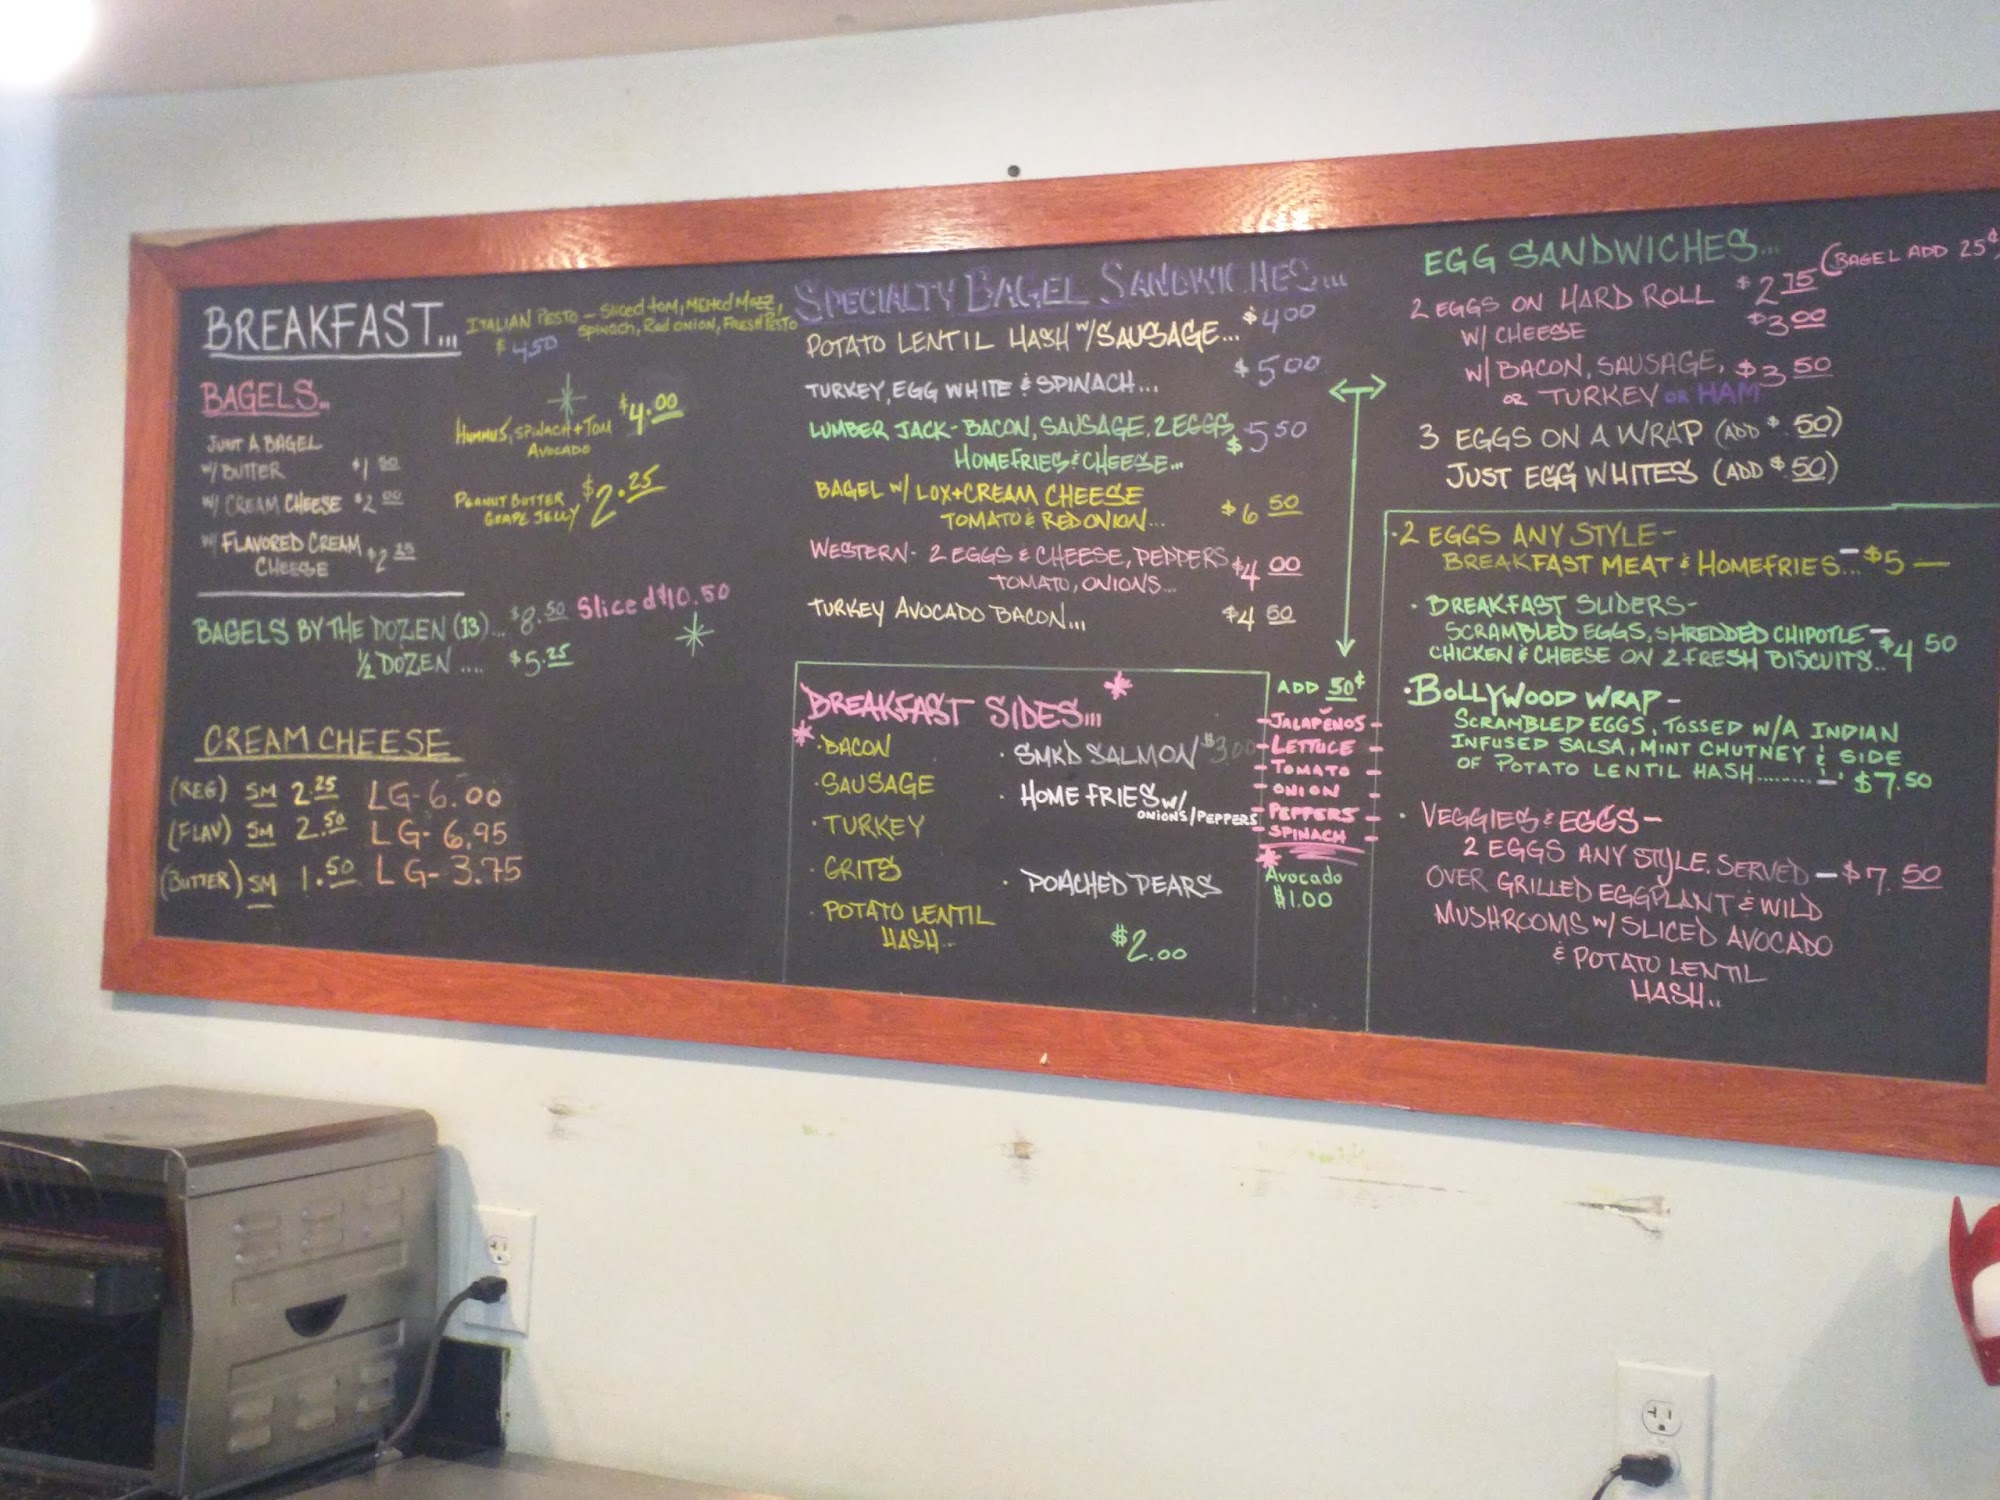 BREAKFAST...
ITALIAN PESTO - Sliced tom, Melted Mozz,
Spinach, Red onion, Fresh Pesto
$ 4.50
BAGELS...
JUST A BAGEL
W/ BUTTER $1.50
W/ CREAM CHEESE $2.00
W/ FLAVORED CREAM
CHEESE $2.25
HUMMUS, SPINACH + TOM
AVOCADO
$4.00
PEANUT BUTTER
GRAPE JELLY $2.25
BAGELS BY THE DOZEN (13)... $8.50 Sliced $10.50
1/2 DOZEN .... $5.25
CREAM CHEESE
(REG) SM 2.25 LG-6.00
(FLAV) SM 2.50 LG-6.95
(BUTTER) SM 1.50 LG-3.75
SPECIALTY BAGEL SANDWICHES...
POTATO LENTIL HASH W/SAUSAGE... $4.00
TURKEY, EGG WHITE & SPINACH... $5.00
LUMBER JACK- BACON, SAUSAGE, 2 EGGS
HOMEFRIES & CHEESE... $5.50
BAGEL W/ LOX+CREAM CHEESE
TOMATO & RED ONION... $6.50
WESTERN- 2 EGGS & CHEESE, PEPPERS
TOMATO, ONIONS... $4.00
TURKEY AVOCADO BACON... $4.50
BREAKFAST SIDES...
· BACON
· SAUSAGE
· TURKEY
· GRITS
· POTATO LENTIL
HASH...
· SMKD SALMON $3.00
· HOME FRIES W/
ONIONS/PEPPERS
· POACHED PEARS
$2.00
ADD 50¢
- JALAPEÑOS -
- LETTUCE -
- TOMATO -
- ONION -
- PEPPERS -
- SPINACH -
Avocado
$1.00
EGG SANDWICHES...
2 EGGS ON HARD ROLL $2.75 (BAGEL ADD 25¢)
W/ CHEESE $3.00
W/ BACON, SAUSAGE, $3.50
OR TURKEY OR HAM
3 EGGS ON A WRAP (ADD $.50)
JUST EGG WHITES (ADD $.50)
· 2 EGGS ANY STYLE-
BREAKFAST MEAT & HOMEFRIES... $5 —
· BREAKFAST SLIDERS-
SCRAMBLED EGGS, SHREDDED CHIPOTLE
CHICKEN & CHEESE ON 2 FRESH BISCUITS.. $4.50
· BOLLYWOOD WRAP -
SCRAMBLED EGGS, TOSSED W/A INDIAN
INFUSED SALSA, MINT CHUTNEY & SIDE
OF POTATO LENTIL HASH......... $7.50
· VEGGIES & EGGS -
2 EGGS ANY STYLE. SERVED - $7.50
OVER GRILLED EGGPLANT & WILD
MUSHROOMS W/ SLICED AVOCADO
& POTATO LENTIL
HASH..